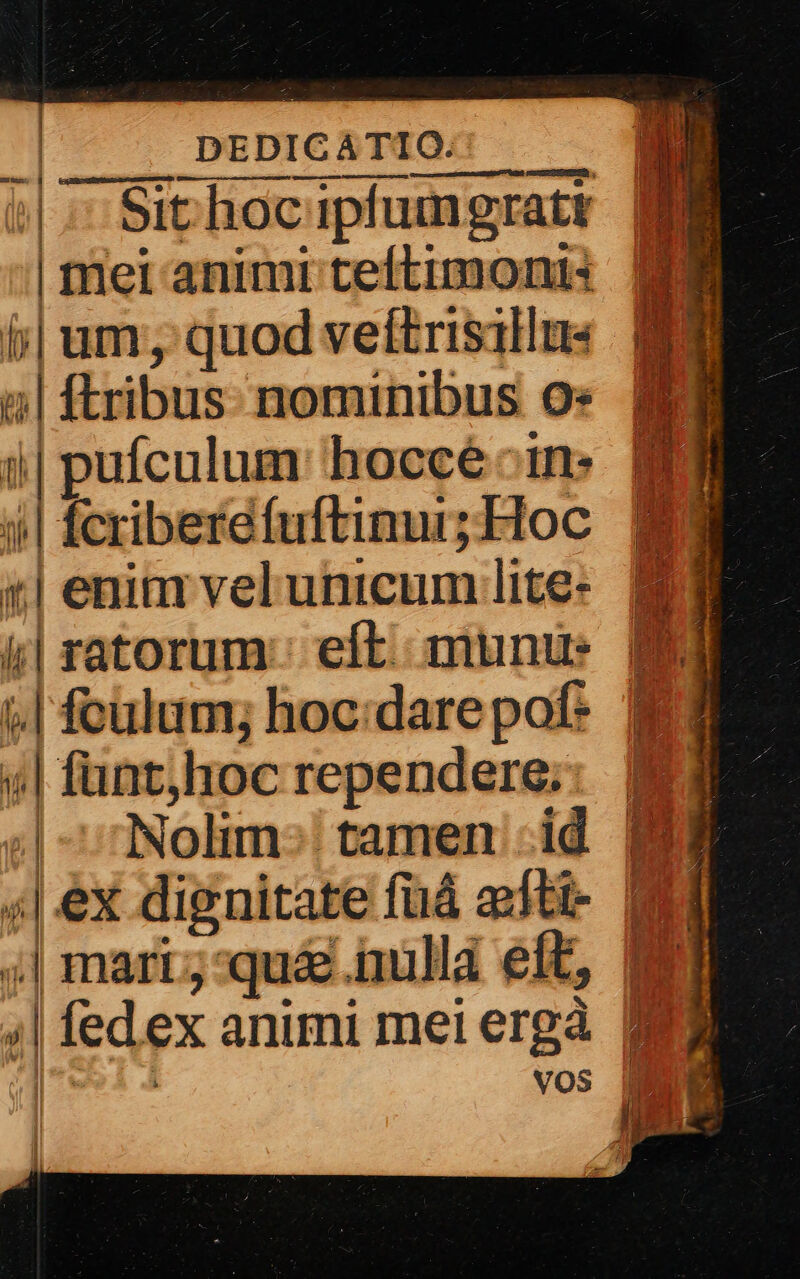 DEDICATIO.
Sit hoc ipſum grati
mei animi teſtimoni-
um, quod veſtris illu-
ſtribus nominibus o-
puſculum hocce in-
ſcribere ſuſtinui; Hoc
enim vel unicum lite-
ratorum eſt munu-
ſculum; hoc dare poſ-
ſunt, hoc rependere.
Nolim tamen id
ex dignitate ſuâ æſti-
mari, quæ nulla eſt,
ſed ex animi mei ergà
vos